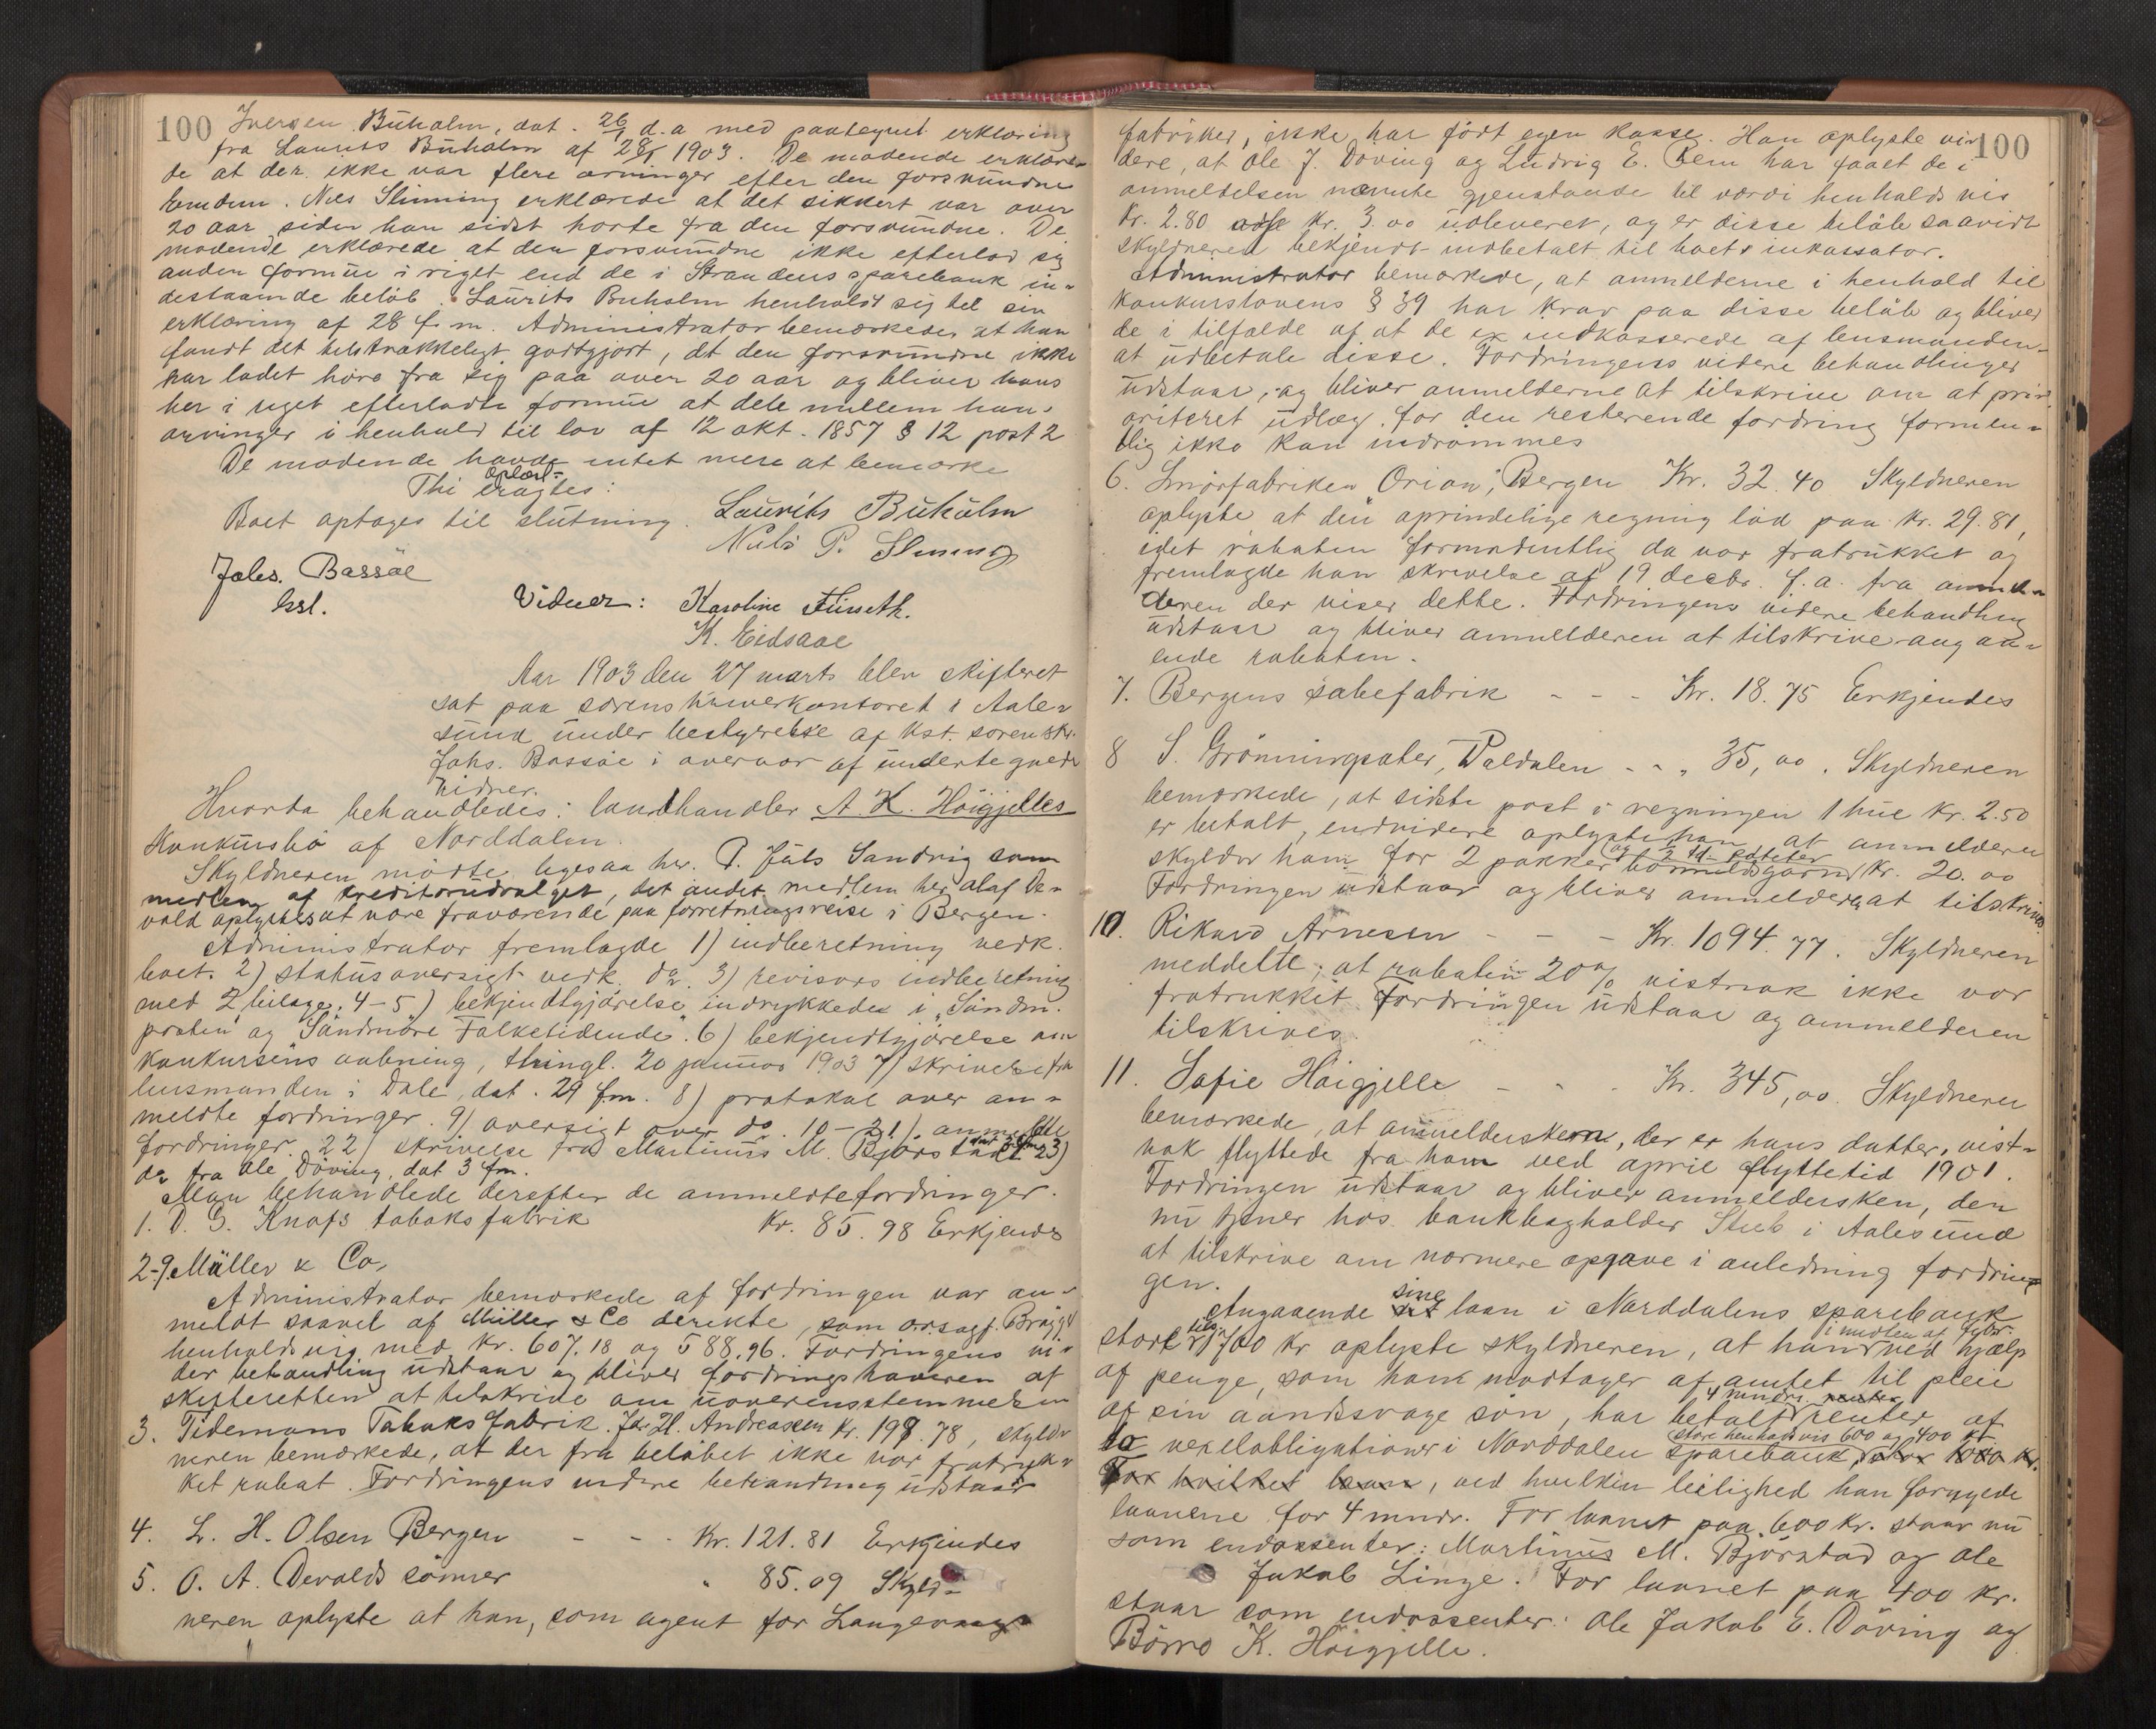 100
Iversen Buholm, dat. 26/1 d.a med paategnet erklæring
fra Laurits Buholm af 28/1 1903. De mødende erklære-
de at der ikke var flere arvinger efter den forsvundne
end dem. Nils Slinning erklærede at det sikkert var over
20 aar siden han sidst hørte fra den forsvundne. De
mødende erklærede at den forsvundne ikke efterlod sig
anden formue i riget end de i Strandens sparebank in-
destaaende beløb. Laurits Buholm henholdt sig til sin
erklæring af 28 f.m. Administrator bemærkede, at han
fandt det tilstrækkeligt godtgjort, at den forsvundne ikke
har ladet høre fra sig paa over 20 aar og bliver hans
her i riget efterladte formue at dele mellem hans
arvinger i henhold til lov af 12 okt. 1857 § 12 post 2
De mødende havde intet mere at bemærke
Oplæst.-
Thi eragtes:
Boet optages til slutning. Laurits Buholm
Nils P. Slinning
Johs. Bassøe
kst.
Vidner: Karoline Fürseth.
K. Eidsaae
Aar 1903 den 27 marts blev skifteret
sat paa sorenskriverkontoret i Aale-
sund under bestyrelse af kst. sorenskr.
Johs. Bassøe i overvær af undertegnede
vidner.
Hvorda behandledes: landhandler A. K. Høigjelles
konkursbo af Norddalen.
Skyldneren mødte, ligesaa hr. P. Juls Sandvig som
medlem af kreditorudvalget, det andet medlem hr. Olaf De-
vold oplystes at være fraværende paa forretningsreise i Bergen.
Administrator fremlagde 1) indberetning vedk.
boet. 2) statusoversigt vedk. do. 3) revisors indberetning
med 2 bilage. 4-5) bekjendtgjørelse indrykkedes i "Søndm.
posten" og "Søndmøre Folketidende". 6) bekjendtgjørelse om
konkursens aabning, thingl. 20 januar 1903 7) skrivelse fra
lensmanden i Dale, dat. 29 f.m. 8) protokol over an-
meldte fordringer. 9) oversigt over do. 10-21) anmeldte
fordringer. 22) skrivelse fra Martinus M. Bjørstad 23)
do fra Ole Døving, dat 3 f.m.
Man behandlede derefter de anmeldte fordringer.
1. D. G. Knofs tobaksfabrik Kr. 85.98 Erkjendes
2-9. Müller & Co,
Administrator bemærkede af fordringen var an-
meldt saavel af Müller & Co direkte, som o.r.sagf. Brügg
henholdsvis med kr. 607.18 og 588.96. Fordringens vi-
der behandling udstaar og bliver fordringshaveren af
skifteretten at tilskrive om uoverensstemmelsen
3. Tidemans Tobaksfabrik. Joh. H. Andreassen kr. 198.78, skyld-
neren bemærkede, at der fra beløbet ikke var fratruk-
ket rabat. Fordringens videre behandling udstaar
4. L. H. Olsen Bergen - - - Kr. 121.81 Erkjendes
5. O. A. Devolds sønner " 85.09 Skyld-
neren oplyste at han, som agent for Langevaags
100
fabriker, ikke har ført egen kasse. Han oplyste vi-
dere, at Ole J. Døving og Ludvig E. Bem har faaet de i
anmeldelsen nævnte gjenstande til værdi henholdsvis
Kr. 2.80 og Kr. 3.00 udleveret, og er disse beløb saavidt
skyldneren bekjendt indbetalt til boets inkassator.
Administrator bemærkede, at anmelderne i henhold til
konkurslovens § 39 har krav paa disse beløb og bliver
de i tilfælde af at de er indkasserede af lensmanden
at udbetale disse. Fordringens videre behandlinger
udstaar, og bliver anmelderne at tilskrive om at pri-
oriteret udlæg for den resterende fordring formen-
tlig ikke kan indrømmes
6. Smørfabriken "Orion", Bergen Kr. 32.40 Skyldneren
oplyste at den oprindelige regning lød paa Kr. 29.81,
idet rabatten formodentlig da var fratrukket og
fremlagde han skrivelse af 19 decbr. f.a. fra anmel-
deren der viser dette. Fordringens videre behandling
udstaar og bliver anmelderen at tilskrive angaa-
ende rabaten.
7. Bergens sæbefabrik - - - Kr. 18.75 Erkjendes
8 S. Grønningsæter, Valdalen - - " 35,00. Skyldneren
bemærkede, at sidste post i regningen 1 hue kr. 2.50
er betalt, endvidere oplyste han at anmelderen
skylder ham for 2 pakker bomuldsgarn kr. 20.00
Fordringen udstaar og bliver anmelderen at tilskrive.
10. Rikard Arnesen - - - Kr. 1094.77. Skyldneren
meddelte, at rabatten 20 % vistnok ikke var
fratrukket. Fordringen udstaar og anmelderen
tilskrives.
11. Sofie Høigjelle - - - Kr. 345,00. Skyldneren
bemærkede, at anmeldersken, der er hans datter, vist-
nok flyttede fra ham ved april flyttetid 1901.
Fordringen udstaar og bliver anmeldersken, den
nu tjener hos bankbogholder Stub i Aalesund
at tilskrive om nærmere opgave i anledning fordrin-
gen.
Angaaende sine laan i Norddalens sparebank
stort tils. 1700 kr oplyste skyldneren, at han ved hjælp
af penge, som han modtager af amtet til pleie
af sin aandssvage søn, har betalt 4 mndr. renter af
to vexelobligationer i Norddalen sparebank, store henholdsvis 600 og 400 kr.
For hvilket laan, ved hvilken leilighed han fornyede
laanene for 4 mndr. For laanet paa 600 kr. staar nu
som endossenter: Martinus M. Bjørstad og Ole
Jakob Linge. For laanet paa 400 kr.
staar som endossenter: Ole Jakob E. Døving og
Børre K. Høigjelle.